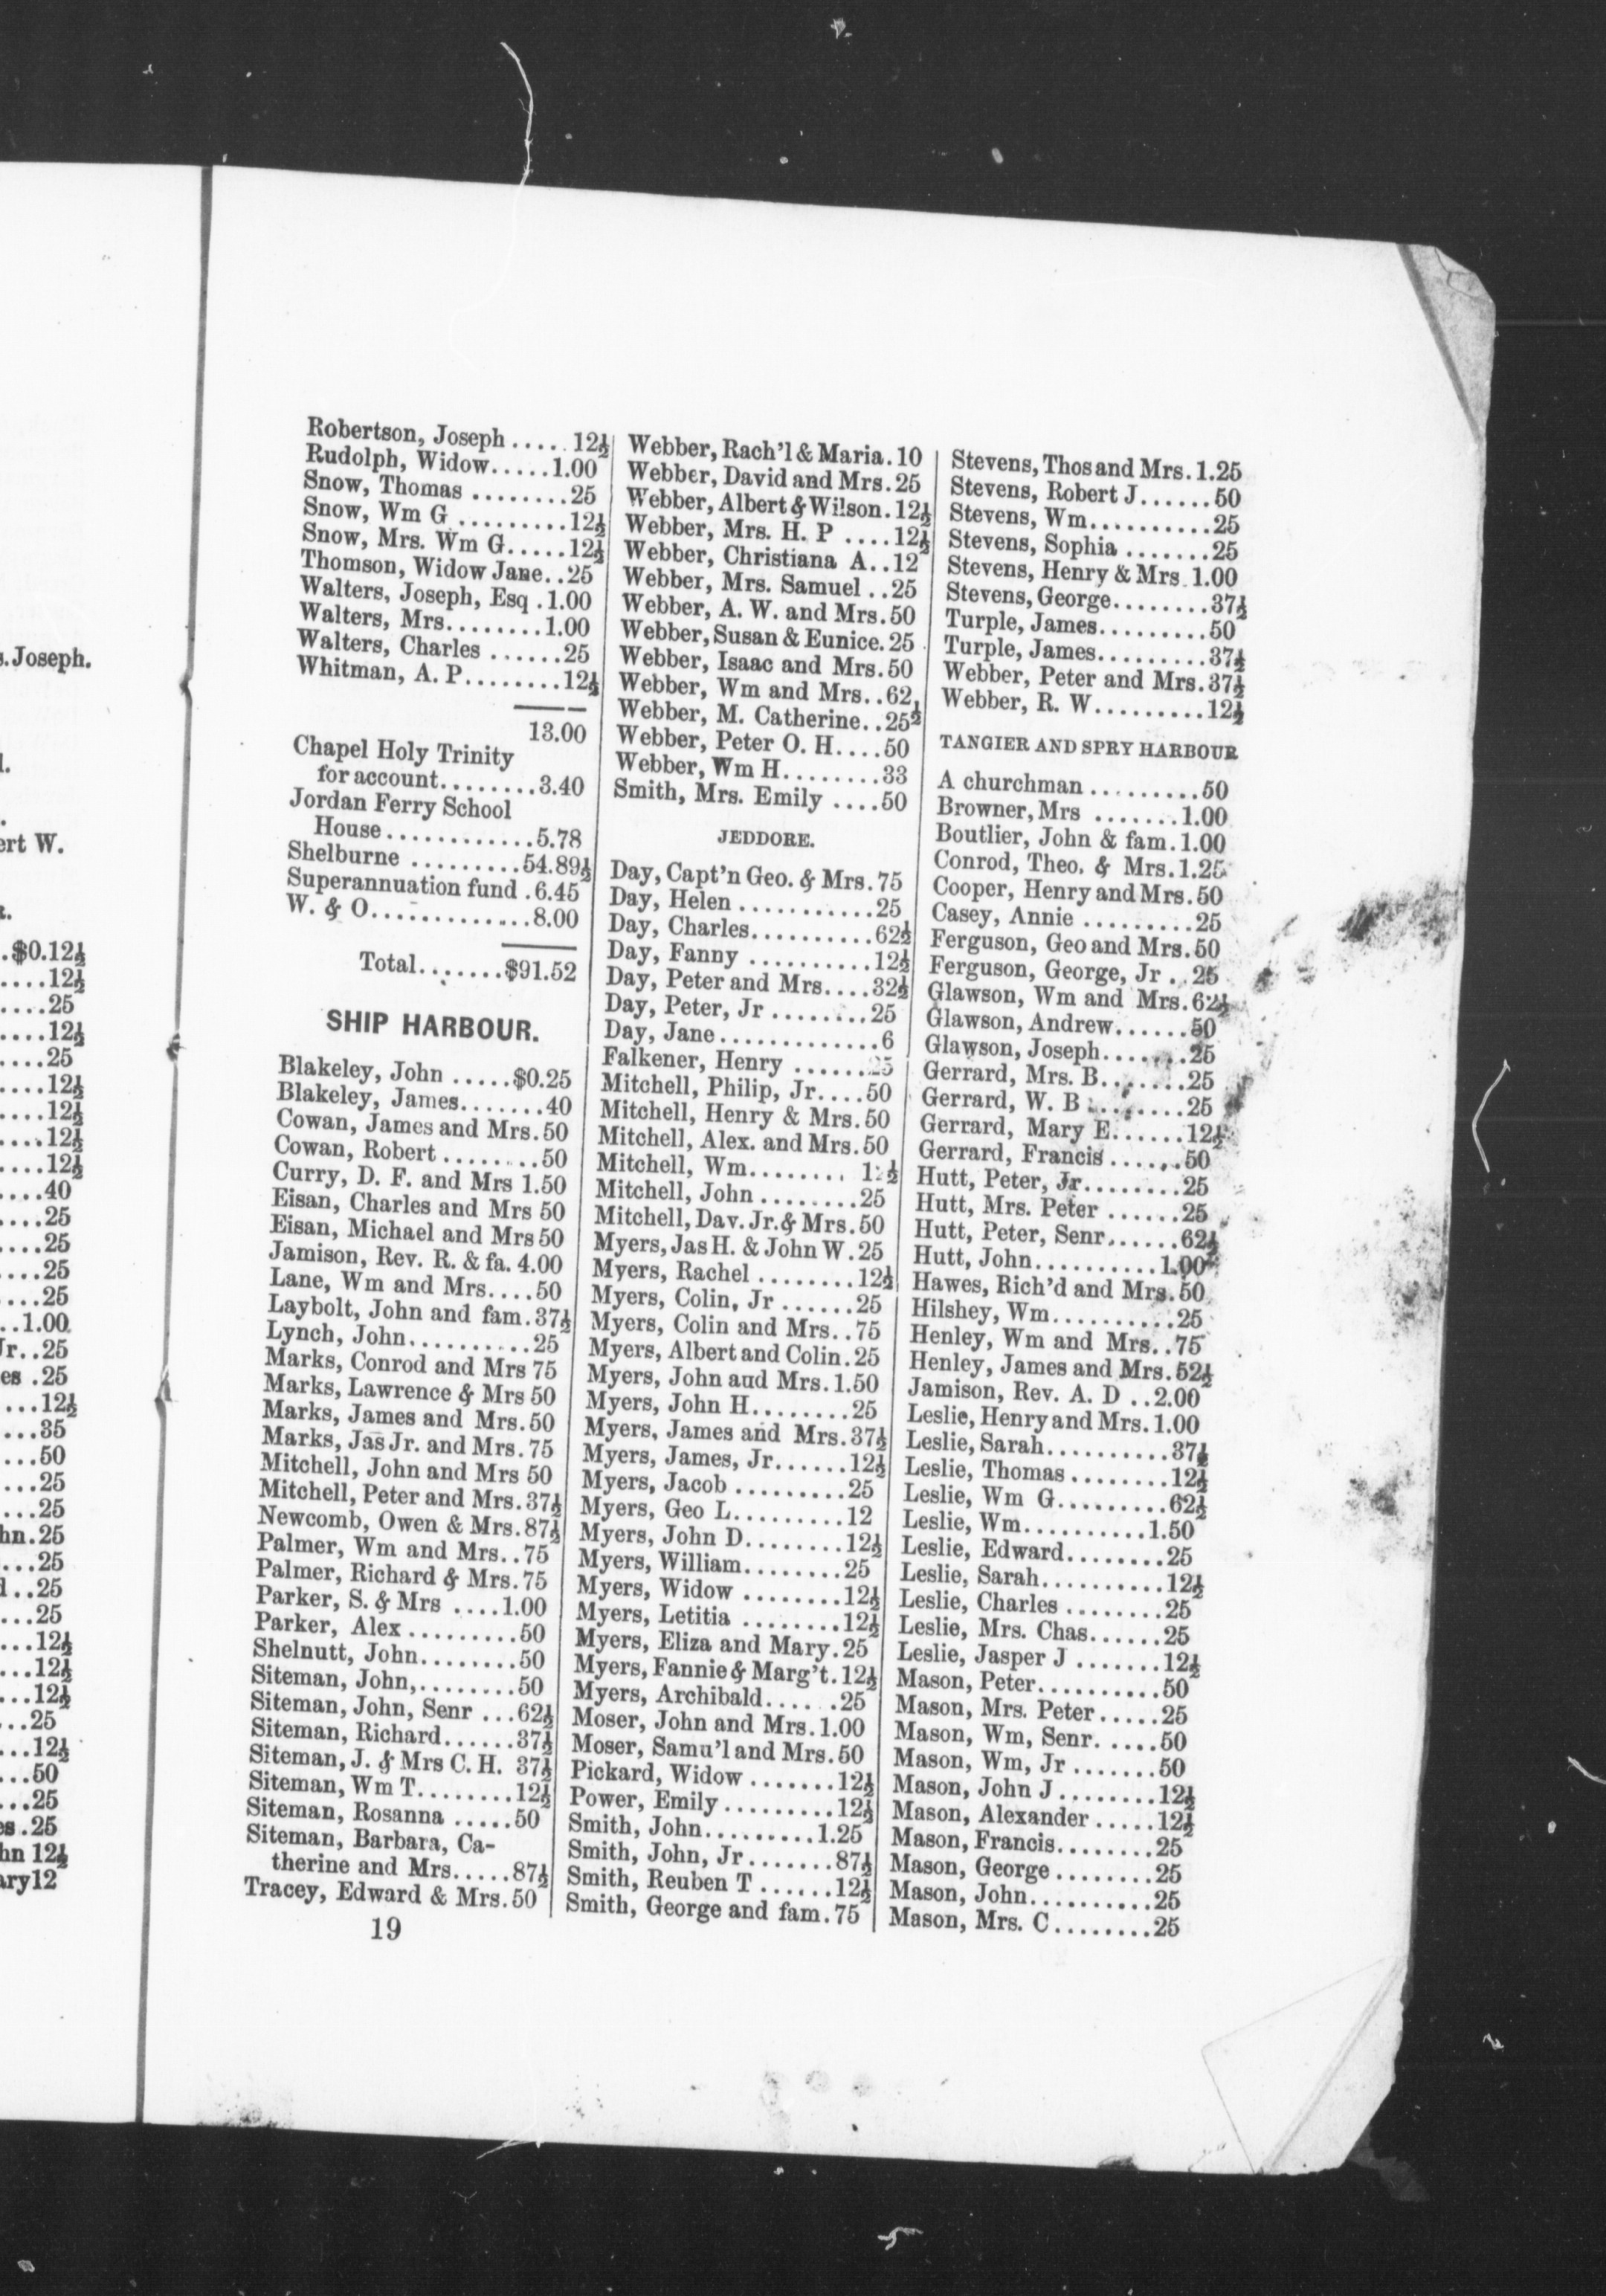 s. Joseph.
l.
ert W.
.$0.12½
....12½
....25
....12½
....25
....12½
....12½
....12½
....12½
....40
....25
....25
....25
....25
..1.00
Jr..25
es .25
...12½
...35
...50
...25
...25
hn.25
...25
..25
...25
...12½
...12½
...12½
...25
...12½
...50
...25
es.25
hn 12½
ary12
Robertson, Joseph ..... 12½
Rudolph, Widow.....1.00
Snow, Thomas ........25
Snow, Wm G .........12½
Snow, Mrs. Wm G.....12½
Thomson, Widow Jane..25
Walters, Joseph, Esq .1.00
Walters, Mrs........1.00
Walters, Charles ......25
Whitman, A. P........12½
13.00
Chapel Holy Trinity
for account........3.40
Jordan Ferry School
House............5.78
Shelburne .........54.89½
Superannuation fund .6.45
W. & O.............8.00
Total.......$91.52
SHIP HARBOUR.
Blakeley, John .....$0.25
Blakeley, James.......40
Cowan, James and Mrs.50
Cowan, Robert ........50
Curry, D. F. and Mrs 1.50
Eisan, Charles and Mrs 50
Eisan, Michael and Mrs 50
Jamison, Rev. R. & fa. 4.00
Lane, Wm and Mrs....50
Laybolt, John and fam.37½
Lynch, John..........25
Marks, Conrod and Mrs 75
Marks, Lawrence & Mrs 50
Marks, James and Mrs.50
Marks, Jas Jr. and Mrs.75
Mitchell, John and Mrs 50
Mitchell, Peter and Mrs.37½
Newcomb, Owen & Mrs.87½
Palmer, Wm and Mrs..75
Palmer, Richard & Mrs.75
Parker, S. & Mrs ....1.00
Parker, Alex .........50
Shelnutt, John........50
Siteman, John,........50
Siteman, John, Senr ...62½
Siteman, Richard......37½
Siteman, J. & Mrs C. H. 37½
Siteman, Wm T........12½
Siteman, Rosanna .....50
Siteman, Barbara, Ca-
therine and Mrs.....87½
Tracey, Edward & Mrs.50
19
Webber, Rach'l & Maria.10
Webber, David and Mrs.25
Webber, Albert & Wilson.12½
Webber, Mrs. H. P ....12½
Webber, Christiana A..12
Webber, Mrs. Samuel ..25
Webber, A. W. and Mrs.50
Webber, Susan & Eunice.25
Webber, Isaac and Mrs.50
Webber, Wm and Mrs..62½
Webber, M. Catherine..25
Webber, Peter O. H....50
Webber, Wm H........33
Smith, Mrs. Emily ....50
JEDDORE.
Day, Capt'n Geo. & Mrs.75
Day, Helen ...........25
Day, Charles..........62½
Day, Fanny ..........12½
Day, Peter and Mrs....32½
Day, Peter, Jr ........25
Day, Jane.............6
Falkener, Henry ......25
Mitchell, Philip, Jr....50
Mitchell, Henry & Mrs.50
Mitchell, Alex. and Mrs.50
Mitchell, Wm........
Mitchell, John ........25
Mitchell, Dav. Jr. & Mrs.50
Myers, Jas H. & John W.25
Myers, Rachel ........12½
Myers, Colin, Jr ......25
Myers, Colin and Mrs..75
Myers, Albert and Colin.25
Myers, John aud Mrs.1.50
Myers, John H........25
Myers, James and Mrs.37½
Myers, James, Jr......12½
Myers, Jacob .........25
Myers, Geo L.........12
Myers, John D........12½
Myers, William........25
Myers, Widow ........12½
Myers, Letitia ........12½
Myers, Eliza and Mary.25
Myers, Fannie & Marg't.12½
Myers, Archibald......25
Moser, John and Mrs.1.00
Moser, Samu'l and Mrs.50
Pickard, Widow .......12½
Power, Emily.........12½
Smith, John.........1.25
Smith, John, Jr .......87½
Smith, Reuben T ......12½
Smith, George and fam.75
Stevens, Thos and Mrs.1.25
Stevens, Robert J......50
Stevens, Wm..........25
Stevens, Sophia .......25
Stevens, Henry & Mrs.1.00
Stevens, George........37½
Turple, James.........50
Turple, James.........37½
Webber, Peter and Mrs.37½
Webber, R. W.........12½
TANGIER AND SPRY HARBOUR
A churchman .........50
Browner, Mrs .......1.00
Boutlier, John & fam.1.00
Conrod, Theo. & Mrs.1.25
Cooper, Henry and Mrs.50
Casey, Annie .........25
Ferguson, Geo and Mrs.50
Ferguson, George, Jr ..25
Glawson, Wm and Mrs.62½
Glawson, Andrew......50
Glawson, Joseph.......25
Gerrard, Mrs. B.......25
Gerrard, W. B ........25
Gerrard, Mary E......12½
Gerrard, Francis ......50
Hutt, Peter, Jr........25
Hutt, Mrs. Peter ......25
Hutt, Peter, Senr......62½
Hutt, John..........1.00
Hawes, Rich'd and Mrs.50
Hilshey, Wm..........25
Henley, Wm and Mrs..75
Henley, James and Mrs.52½
Jamison, Rev. A. D ..2.00
Leslie, Henry and Mrs.1.00
Leslie, Sarah..........37½
Leslie, Thomas ........12½
Leslie, Wm G.........62½
Leslie, Wm..........1.50
Leslie, Edward........25
Leslie, Sarah..........12½
Leslie, Charles ........25
Leslie, Mrs. Chas......25
Leslie, Jasper J .......12½
Mason, Peter..........50
Mason, Mrs. Peter .....25
Mason, Wm, Senr......50
Mason, Wm, Jr .......50
Mason, John J ........12½
Mason, Alexander .....12½
Mason, Francis........25
Mason, George ........25
Mason, John..........25
Mason, Mrs. C........25